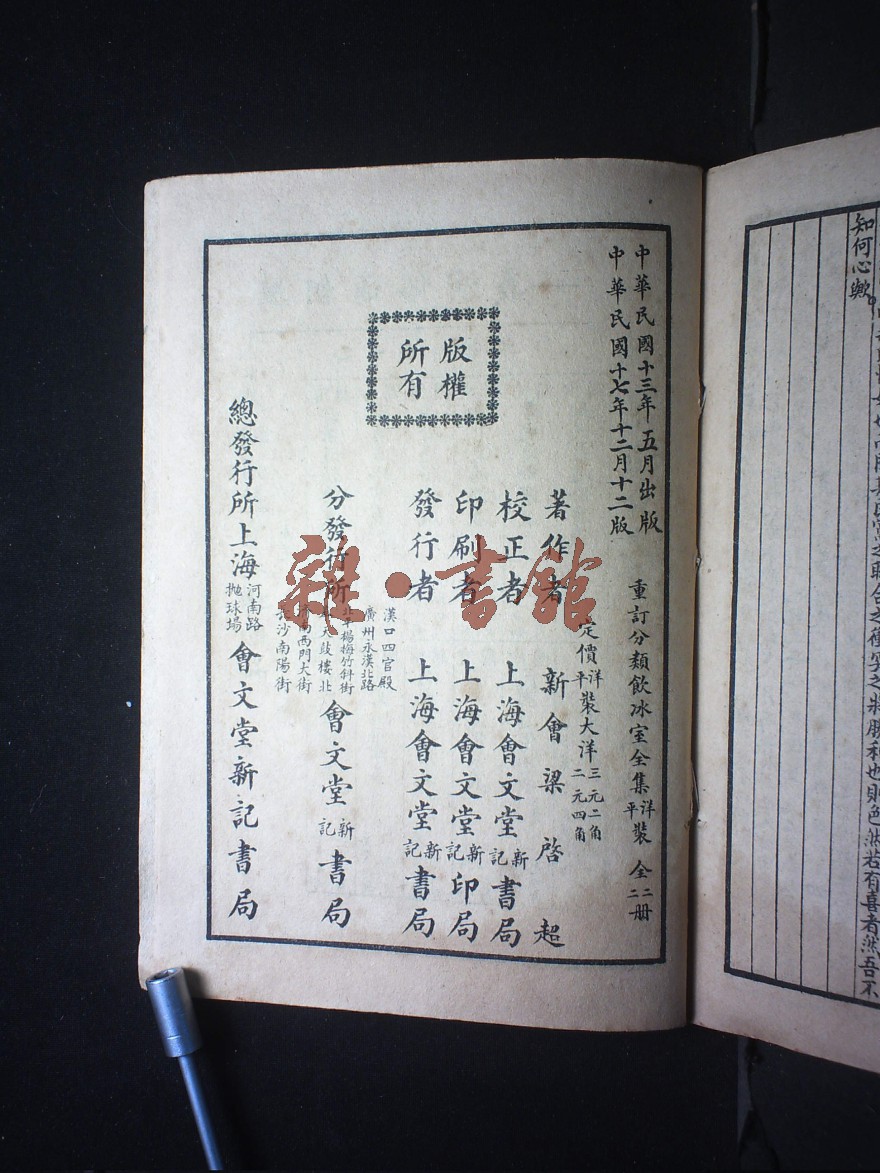 中華民國十三年五月出版
中華民國十七年十二月十二版
重訂分類飲冰室全集 洋平裝 全二二册
定價 洋平裝大洋 三元二角 二元四角
著作者 新會梁啓超
校正者 上海會文堂新記書局
印刷者 上海會文堂新記印局
發行者 上海會文堂新記書局
版權所有
分發行所
漢口四官殿
廣州永漢北路
楊梅竹斜街
鼓樓北
西門大街
長沙南陽街
會文堂新記書局
總發行所上海 河南路拋球場 會文堂新記書局
雜·書館
勝利也則色然若有喜者然吾不
知何心歟